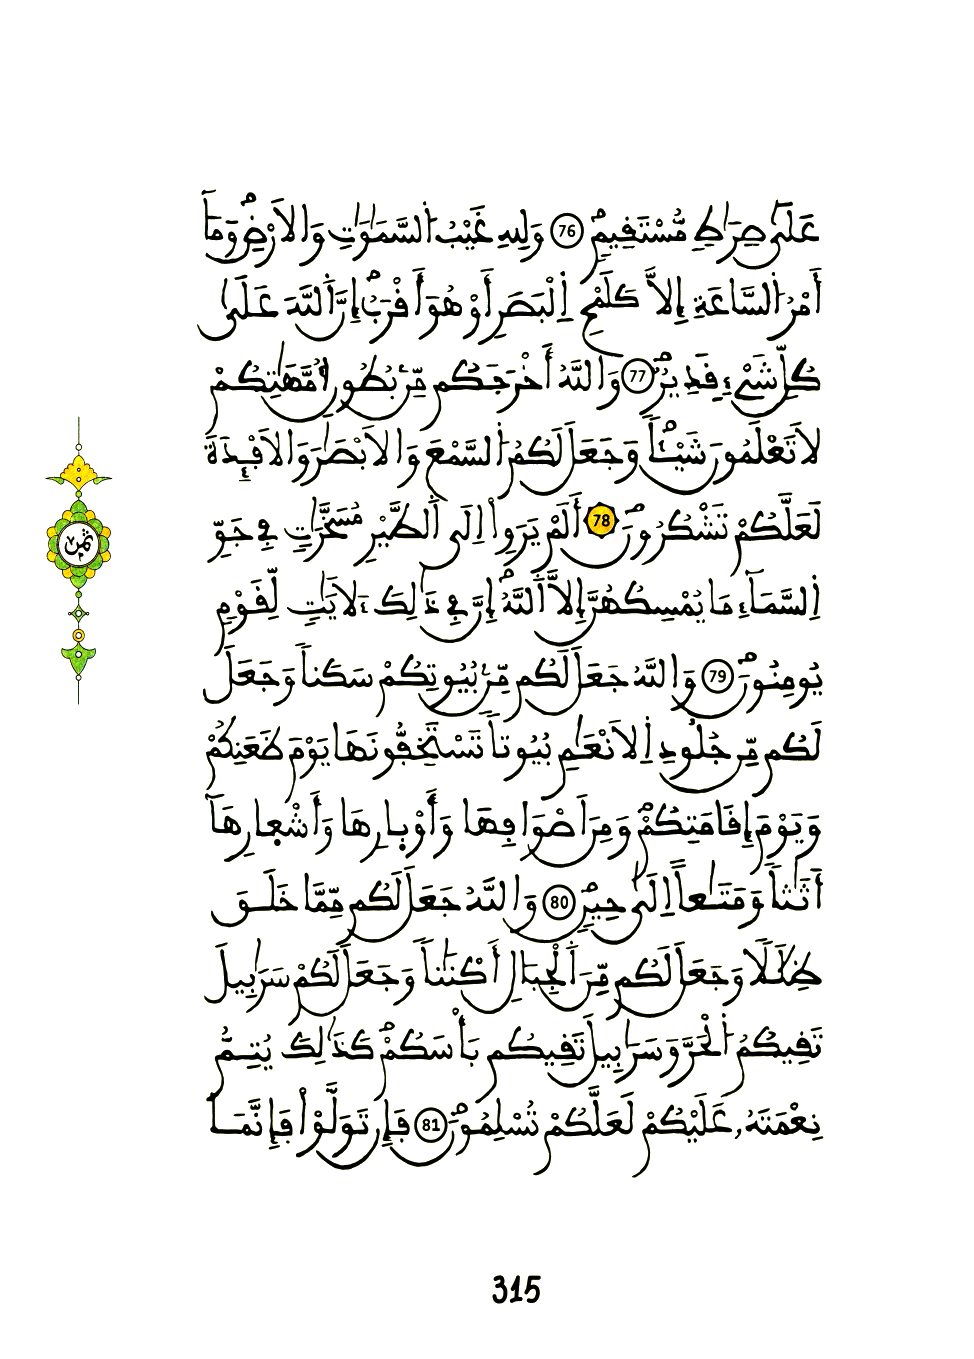 عَلَىٰ صِرَٰطٖ مُّسْتَقِيمٖۖ 76 وَلِلهِ غَيْبُ اُ۬لسَّمَٰوَٰتِ وَالَارْضِۖ وَمَآ
أَمْرُ اُ۬لسَّاعَةِ إِلَّا كَلَمْحِ اِ۬لْبَصَرِ أَوْ هُوَ أَقْرَبُۖ إِنَّ اَ۬للَّهَ عَلَىٰ
كُلِّ شَےْءٖ قَدِيرٞۖ 77 وَاللَّهُ أَخْرَجَكُم مِّنۢ بُطُونِ أُمَّهَٰتِكُمْ
لَا تَعْلَمُونَ شَيْـٔاٗۖ وَجَعَلَ لَكُمُ اُ۬لسَّمْعَ وَالَابْصَٰرَ وَالَافْـِٕدَةَ
لَعَلَّكُمْ تَشْكُرُونَۖ 78 أَلَمْ يَرَوِاْ اِلَى اَ۬لطَّيْرِ مُسَخَّرَٰتٖ فِے جَوِّ
اِ۬لسَّمَآءِ مَا يُمْسِكُهُنَّ إِلَّا اَ۬للَّهُۖ إِنَّ فِے ذَٰلِكَ ءَلَايَٰتٖ لِّقَوْمٖ
يُومِنُونَۖ 79 وَاللَّهُ جَعَلَ لَكُم مِّنۢ بُيُوتِكُمْ سَكَناٗ وَجَعَلَ
لَكُم مِّن جُلُودِ اِ۬لَانْعَٰمِ بُيُوتاٗ تَسْتَخِفُّونَهَا يَوْمَ ظَعَنِكُمْ
وَيَوْمَ إِقَامَتِكُمْۖ وَمِنَ اَصْوَافِهَا وَأَوْبارِهَا وَأَشْعارِهَآ
أَثَٰثاٗ وَمَتَٰعاً اِلَىٰ حِينٖۖ 80 وَاللَّهُ جَعَلَ لَكُم مِّمَّا خَلَقَ
ظِلَٰلاٗ وَجَعَلَ لَكُم مِّنَ اَ۬لْجِبَالِ أَكْنَٰناٗ وَجَعَلَ لَكُمْ سَرَٰبِيلَ
تَقِيكُمُ اُ۬لْحَرَّ وَسَرَٰبِيلَ تَقِيكُم بَأْسَكُمْۖ كَذَٰلِكَ يُتِمُّ
نِعْمَتَهُۥ عَلَيْكُمْ لَعَلَّكُمْ تُسْلِمُونَۖ 81 فَإِن تَوَلَّوْاْ فَإِنَّمَا
ثمن
315